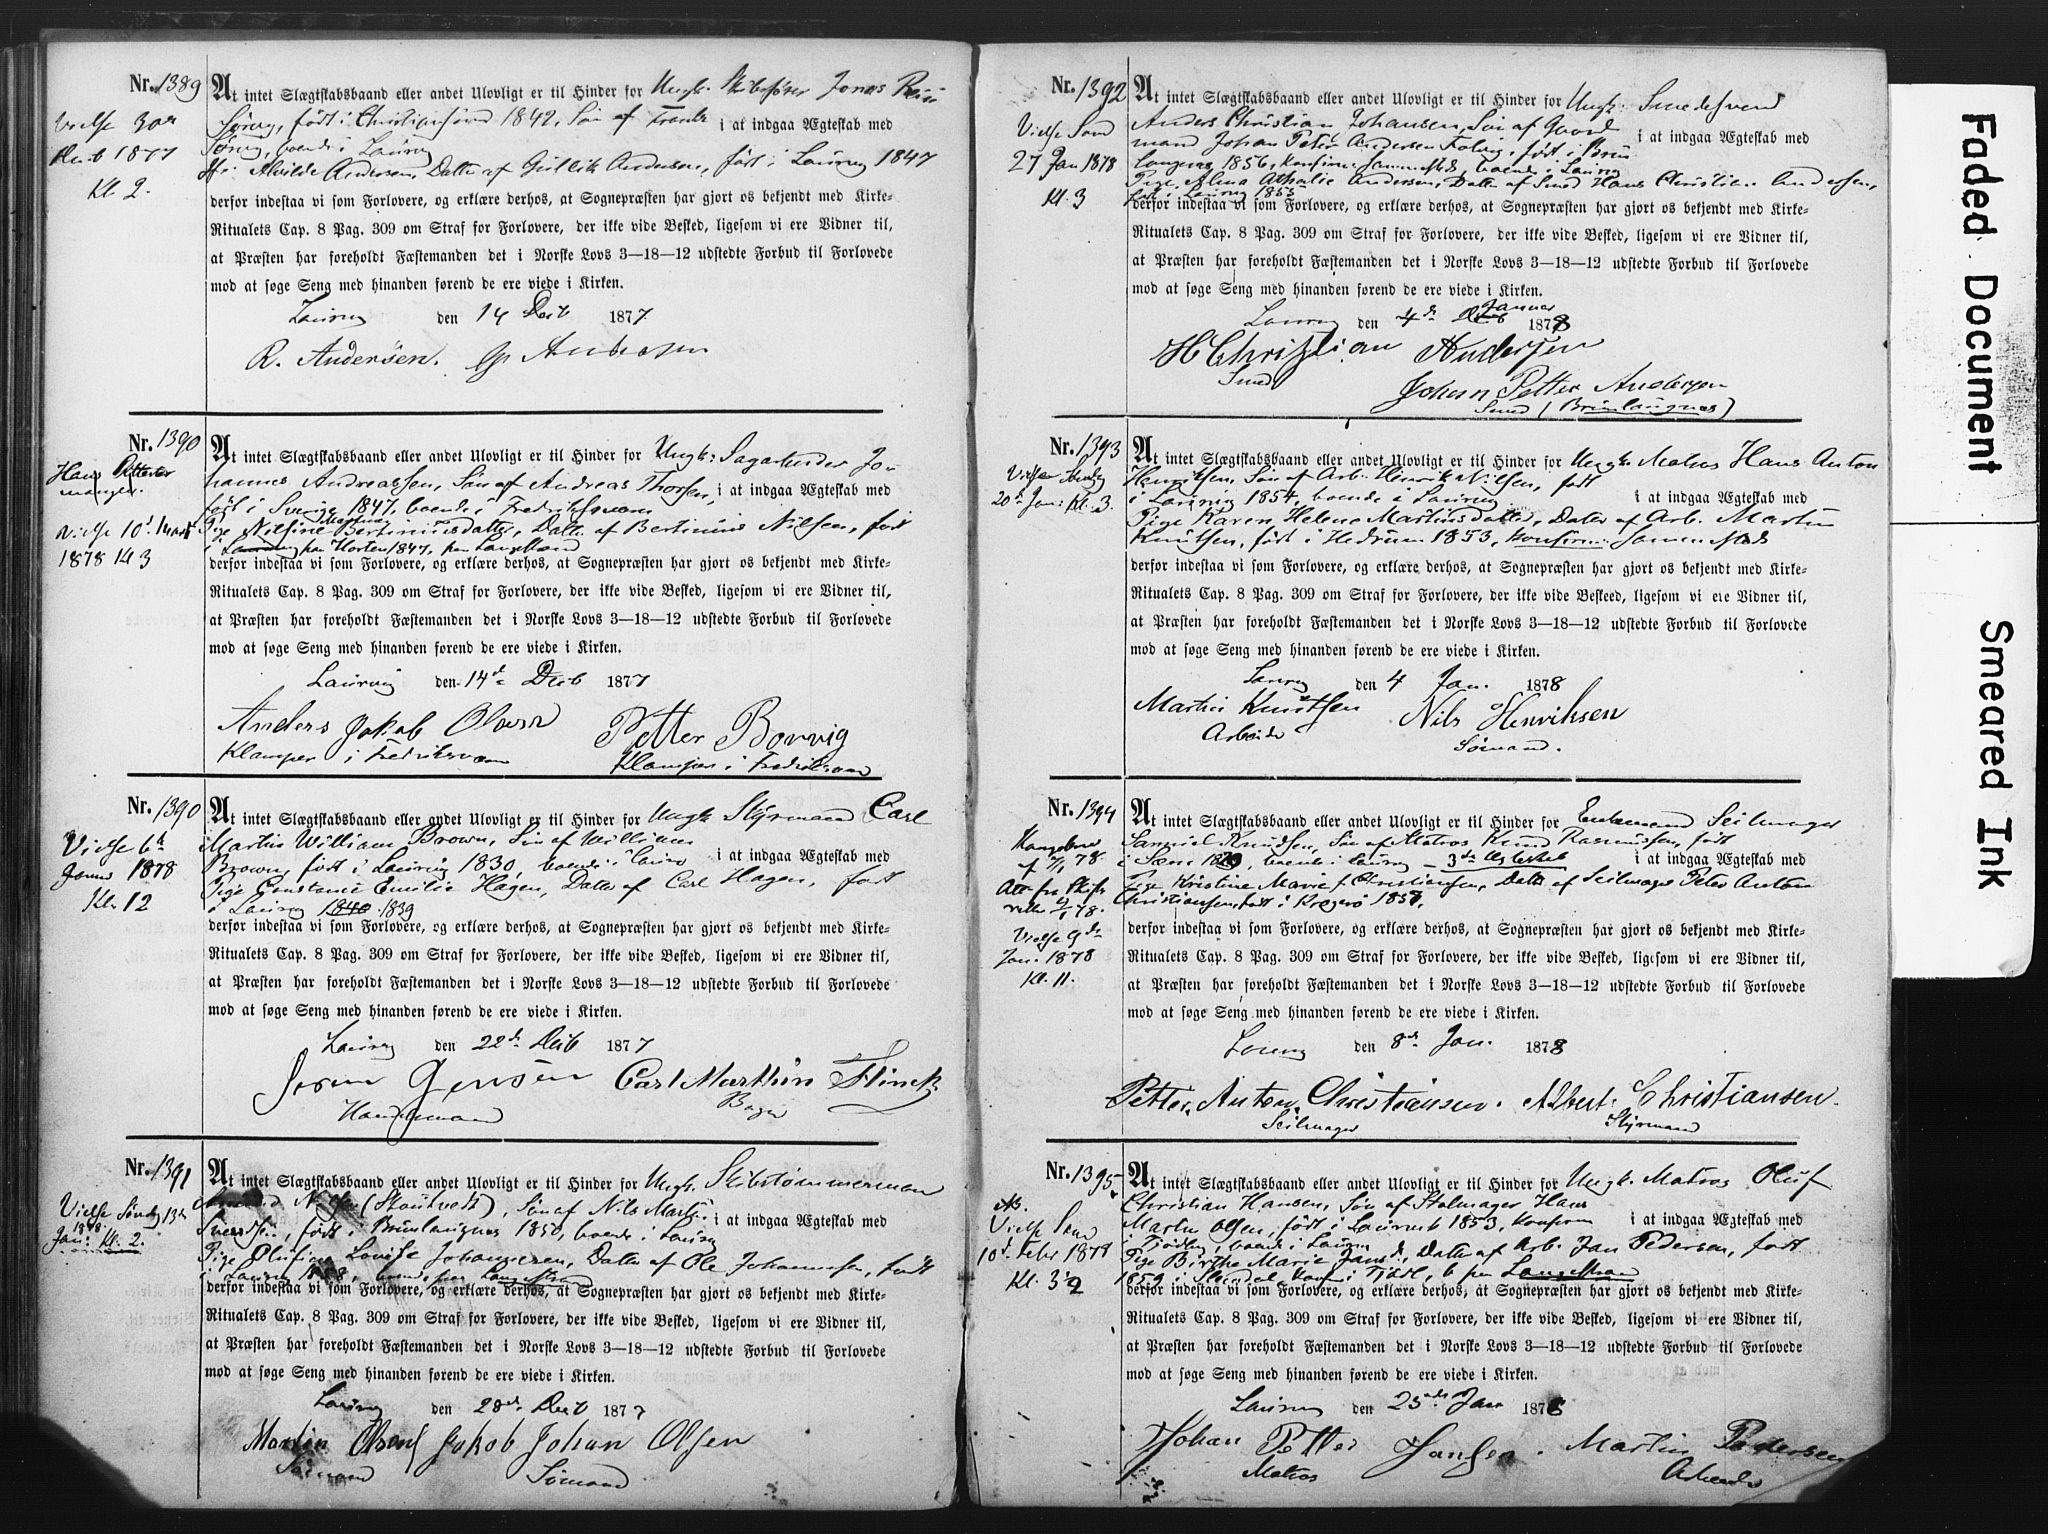 Nr. 1389
Vielse 30
Decb 1877
Kl. 2.
At intet Slægtskabsbaand eller andet Ulovligt er til Hinder for Ungk. Skibsfører Jonas
født i Christiansund 1842, Søn af i at indgaa Ægteskab med
boende i Laurvig
Alvilde Andersen, Datter af Gullik Andersen, født i Laurvig 1847
derfor indestaa vi som Forlovere, og erklære derhos, at Sognepræsten har gjort os bekjendt med Kirke-
Ritualets Cap. 8 Pag. 309 om Straf for Forlovere, der ikke vide Besked, ligesom vi ere Vidner til,
at Præsten har foreholdt Fæstemanden det i Norske Lovs 3—18—12 udstedte Forbud til Forlovede
mod at søge Seng med hinanden førend de ere viede i Kirken.
Laurvig den 14 Decb 1877.
R. Andersen. G. Andersen
Nr. 1390
Hans
mangler.
Vielse 10d Marts
1878 Kl 3
At intet Slægtskabsbaand eller andet Ulovligt er til Hinder for Ungk. Sagarbeider Jo-
hannes Andreassen, Søn af Andreas Thorsen, i at indgaa Ægteskab med
født i Sverige 1847, boende i Fredriksværn
Pige Nilsine Bertiniusdatter, Datter af Bertinius Nilsen, født
i Laurvig Horten 1847, paa Langestrand
derfor indestaa vi som Forlovere, og erklære derhos, at Sognepræsten har gjort os bekjendt med Kirke-
Ritualets Cap. 8 Pag. 309 om Straf for Forlovere, der ikke vide Besked, ligesom vi ere Vidner til,
at Præsten har foreholdt Fæstemanden det i Norske Lovs 3—18—12 udstedte Forbud til Forlovede
mod at søge Seng med hinanden førend de ere viede i Kirken.
Laurvig den 14de Decb 1877
Anders Jakob Olsen Petter Borvig
Klamper i Fredriksværn Klamper i Fredriksværn
Nr. 1390
Vielse 6te
Januar 1878
Kl. 12
At intet Slægtskabsbaand eller andet Ulovligt er til Hinder for Ungk. Styrmand Carl
Martin William Brown, Søn af William
Brown, født i Laurvig 1830, boende i Laurvig i at indgaa Ægteskab med
Pige Constance Emilie Hagen, Datter af Carl Hagen, født
i Laurvig 1840 1839
derfor indestaa vi som Forlovere, og erklære derhos, at Sognepræsten har gjort os bekjendt med Kirke-
Ritualets Cap. 8 Pag. 309 om Straf for Forlovere, der ikke vide Besked, ligesom vi ere Vidner til,
at Præsten har foreholdt Fæstemanden det i Norske Lovs 3—18—12 udstedte Forbud til Forlovede
mod at søge Seng med hinanden førend de ere viede i Kirken.
Laurvig den 22de Decb 1877
Søren Jensen Carl Marthin Flinck
Handelsmand Bager
Nr. 1391
Vielse Søndag 13de
1878
Jan: Kl. 2.
At intet Slægtskabsbaand eller andet Ulovligt er til Hinder for Ungk. Skibstømmermand
Søn af Nils Martin i at indgaa Ægteskab med
født i Brunlaugnæs 1850, boende i Laurvig
Pige Olufine Lovise Johannesen, Datter af Ole Johannessen, født
i Laurvig Langestrand
derfor indestaa vi som Forlovere, og erklære derhos, at Sognepræsten har gjort os bekjendt med Kirke-
Ritualets Cap. 8 Pag. 309 om Straf for Forlovere, der ikke vide Besked, ligesom vi ere Vidner til,
at Præsten har foreholdt Fæstemanden det i Norske Lovs 3—18—12 udstedte Forbud til Forlovede
mod at søge Seng med hinanden førend de ere viede i Kirken.
Laurvig den 28de Decb 1877
Martin Olsen Jakob Johan Olsen
Sømand Sømand
Nr. 1392
Vielse Sønd
27 Jan 1878
Kl. 3
At intet Slægtskabsbaand eller andet Ulovligt er til Hinder for Ungk. Smedesvend
Anders Christian Johansen, Søn af Gaard-
mand Johan Peter Andersen født i Brun- i at indgaa Ægteskab med
laugnæs 1856, konfirm. sammesteds, boende i Laurvig
Pige Alma Athalie Andersen, Datter af Smed Hans Christian Andersen,
født i Laurvig 1855
derfor indestaa vi som Forlovere, og erklære derhos, at Sognepræsten har gjort os bekjendt med Kirke-
Ritualets Cap. 8 Pag. 309 om Straf for Forlovere, der ikke vide Besked, ligesom vi ere Vidner til,
at Præsten har foreholdt Fæstemanden det i Norske Lovs 3—18—12 udstedte Forbud til Forlovede
mod at søge Seng med hinanden førend de ere viede i Kirken.
Laurvig den 4de Decb Januar 1878
H Christian Andersen
Smed
Johan Petter Andersen
Smed (Brunlaugnæs)
Nr. 1393
Vielse Søndag
20de Jan: Kl. 3.
At intet Slægtskabsbaand eller andet Ulovligt er til Hinder for Ungk. Matros Hans Anton
Henriksen, Søn af Arb. Henrik Nilsen, født
i Laurvig 1854, boende i Laurvig i at indgaa Ægteskab med
Pige Karen Helene Martinsdatter, Datter af Arb. Martin
Knutsen, født i Hedrum 1853, konfirm. sammesteds
derfor indestaa vi som Forlovere, og erklære derhos, at Sognepræsten har gjort os bekjendt med Kirke-
Ritualets Cap. 8 Pag. 309 om Straf for Forlovere, der ikke vide Beskeed, ligesom vi ere Vidner til,
at Præsten har foreholdt Fæstemanden det i Norske Lovs 3—18—12 udstedte Forbud til Forlovede
mod at søge Seng med hinanden førend de ere viede i Kirken.
Laurvig den 4 Jan. 1878
Martin Knutsen Nils Henriksen
Arbeider Sømand.
Nr. 1394
Att fra Skifte-
retten
Vielse 9de
Jan. 1878
Kl. 11.
At intet Slægtskabsbaand eller andet Ulovligt er til Hinder for Enkemand Seilmager
Samuel Knudsen, Søn af Matros Knud Rasmussen, født
boende i Laurvig 3die Ægteskab i at indgaa Ægteskab med
Pige Kristine Marie Christiansen, Datter af Seilmager Peter Anton
Christiansen, født i Kragerø
derfor indestaa vi som Forlovere, og erklære derhos, at Sognepræsten har gjort os bekjendt med Kirke-
Ritualets Cap. 8 Pag. 309 om Straf for Forlovere, der ikke vide Besked, ligesom vi ere Vidner til,
at Præsten har foreholdt Fæstemanden det i Norske Lovs 3—18—12 udstedte Forbud til Forlovede
mod at søge Seng med hinanden førend de ere viede i Kirken.
Laurvig den 8de Jan. 1878
Petter Anton Christiansen. Albert Christiansen.
Seilmager Styrmand
Nr. 1395
Vielse Sønd
10d Febr 1878
Kl. 3½
At intet Slægtskabsbaand eller andet Ulovligt er til Hinder for Ungk. Matros Oluf
Christian Hansen, Søn af Stolmager Hans
Martin Olsen, født i Laurvik 1853, konfirm i at indgaa Ægteskab med
i Tjødling, boende i Laurvig
Pige Birthe Marie Jansd., Datter af Arb. Jan Pedersen, født
1859 i b paa Langestrand
derfor indestaa vi som Forlovere, og erklære derhos, at Sognepræsten har gjort os bekjendt med Kirke-
Ritualets Cap. 8 Pag. 309 om Straf for Forlovere, der ikke vide Besked, ligesom vi ere Vidner til,
at Præsten har foreholdt Fæstemanden det i Norske Lovs 3—18—12 udstedte Forbud til Forlovede
mod at søge Seng med hinanden førend de ere viede i Kirken.
Laurvig den 25de Jan 1878
Johan Petter Jansen. Martin Pedersen
Matros Arbeider
Faded Document
Smeared Ink